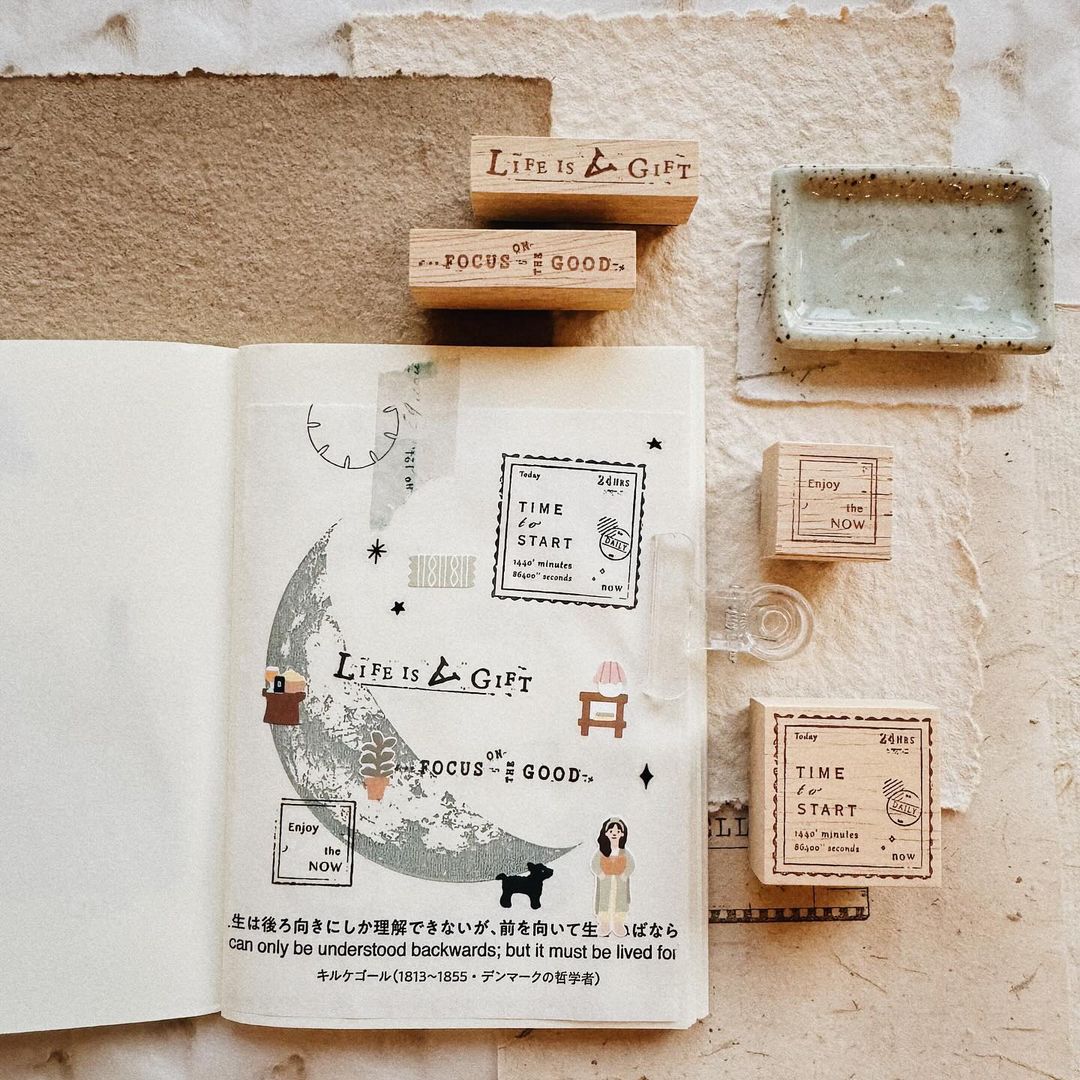 LIFE IS A GIFT
FOCUS ON THE GOOD
Enjoy
the
NOW
Today 24HRS
TIME
to
START
DAILY
1440' minutes
86400'' seconds
now
No 124.
Today 24HRS
TIME
to
START
DAILY
1440' minutes
86400'' seconds
now
LIFE IS A GIFT
FOCUS ON THE GOOD
Enjoy
the
NOW
生は後ろ向きにしか理解できないが、前を向いて生 ばなら
can only be understood backwards; but it must be lived for
キルケゴール(1813~1855・デンマークの哲学者)
ELL